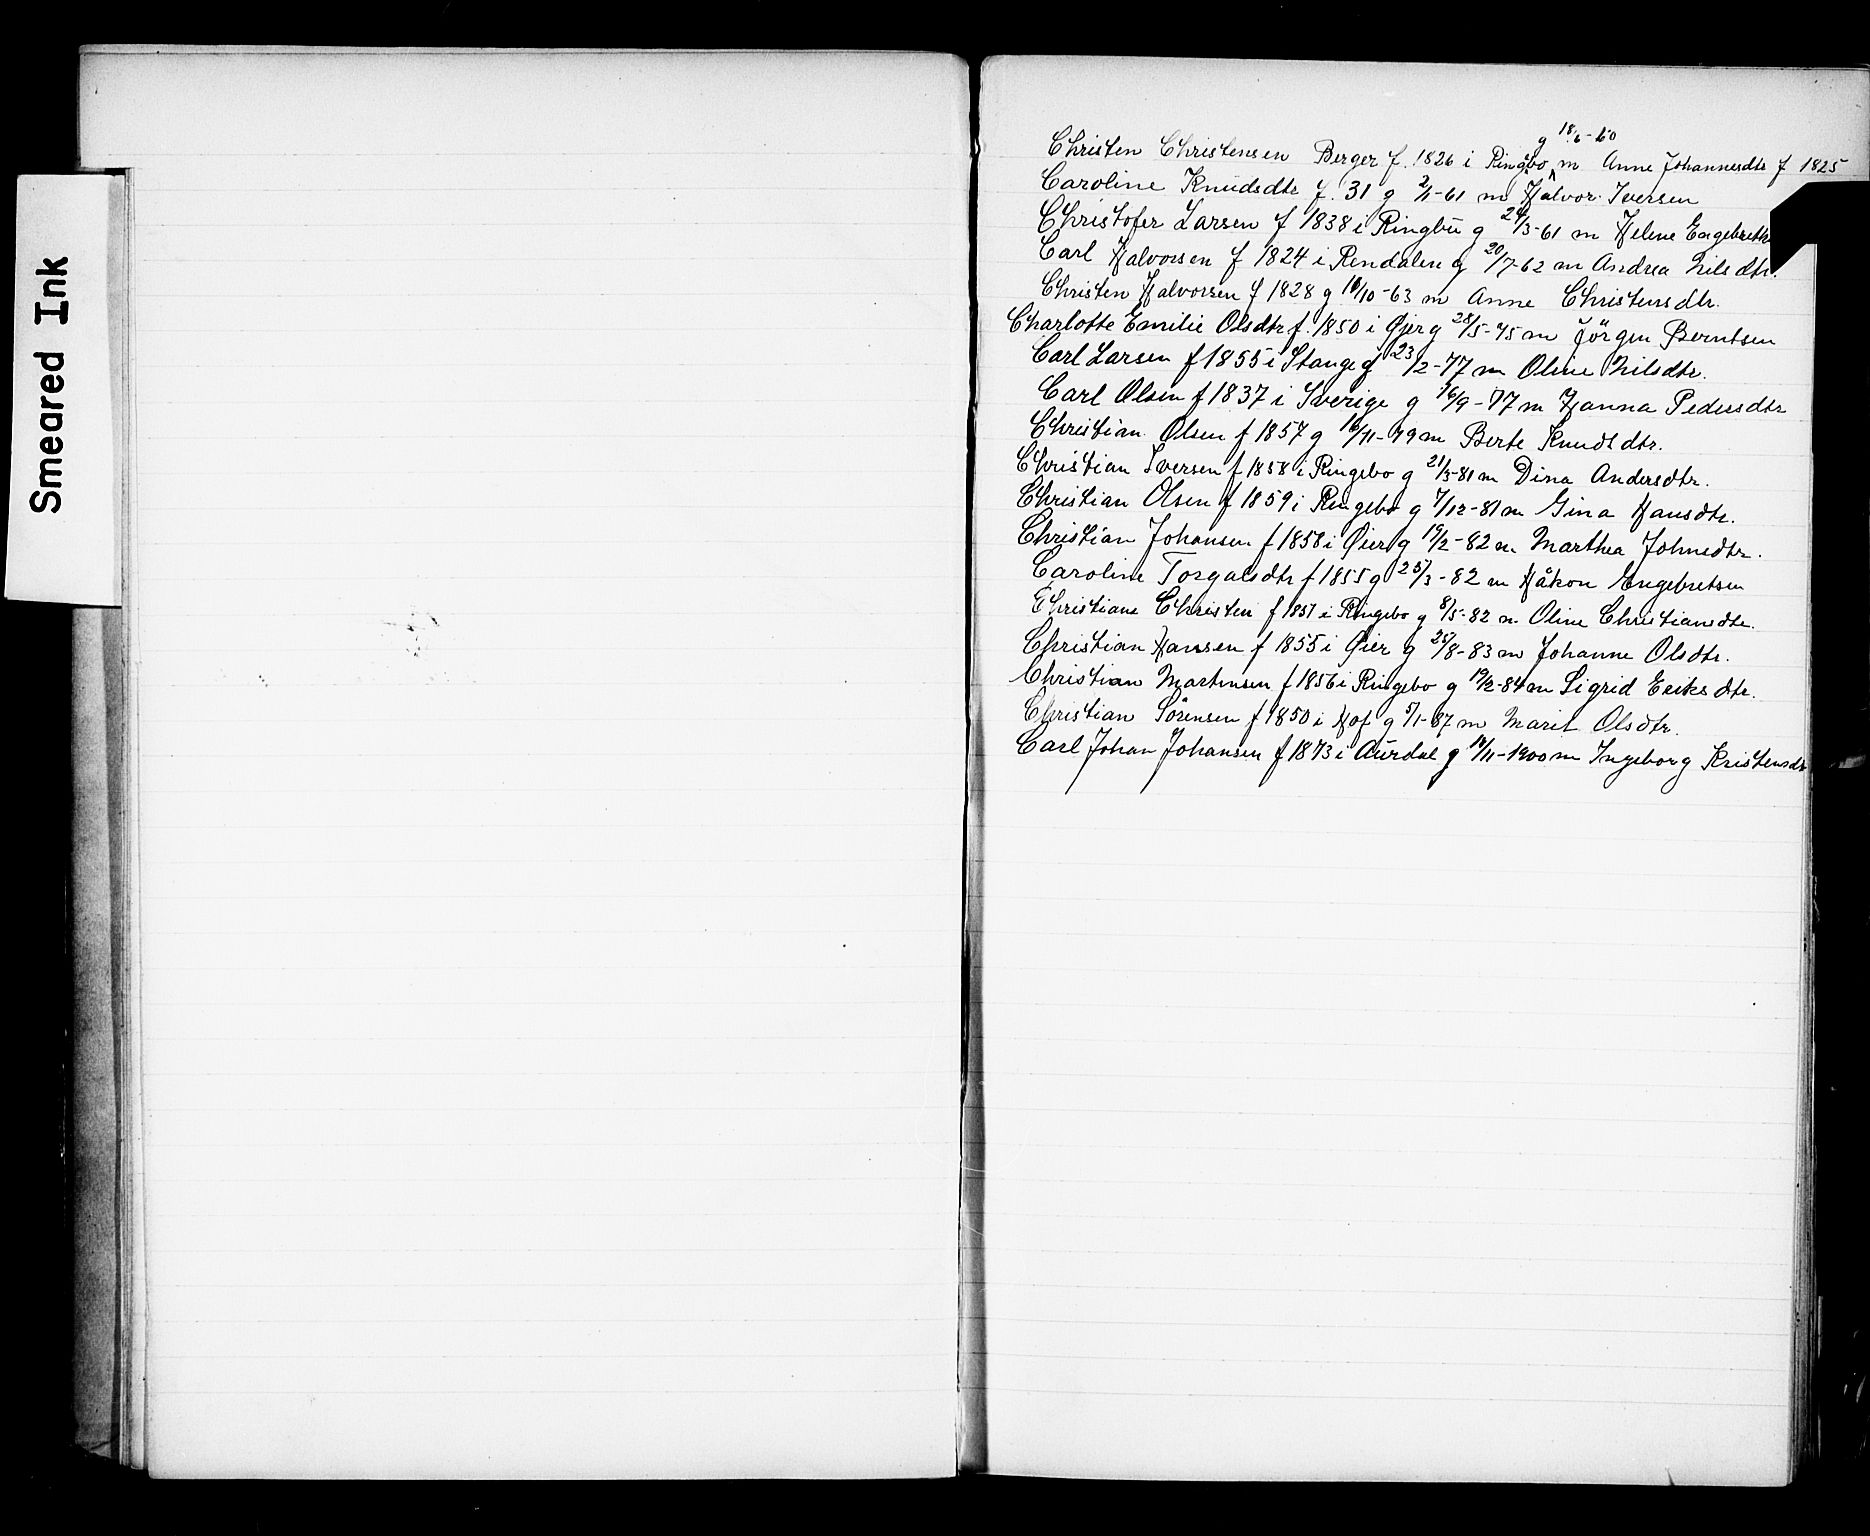 Smeared Ink
g 18/6-60
Christen Christensen Berger f. 1826 i Ringbo m Anne Johannesdtr f 1825
Caroline Knudsdtr f. 31 g 2/1-61 m Halvor Iversen
Christofer Larsen f 1838 i Ringbu g 24/3-61 m Helene
Carl Halvorsen f 1824 i Rendalen g 20/7-62 m Andrea Nilsdtr.
Christen Halvorsen f 1828 g 10/10-63 m Anne Christensdtr.
Charlotte Emilie Olsdtr f. 1850 i Øjer g 28/5-75 m Jörgen Berntsen
Carl Larsen f 1855 i Stange g 23/2-77 m Oline Nilsdtr.
Carl Olsen f 1837 i Sverige g 16/9-77 m Hanna Pedersdtr
Christian Olsen f 1857 g 16/11-79 m Berte Knudtdtr.
Christian Iversen f 1858 i Ringebo g 21/3-81 m Dina Andersdtr.
Christian Olsen f 1859 i Ringebo g 7/12-81 m Gina Hansdtr.
Christian Johansen f 1858 i Øier g 19/2-82 m Marthea Johnsdtr.
Caroline Torgalsdtr f 1855 g 25/3-82 m Håkon Engebretsen
Christiane Christen f 1857 i Ringebo g 8/5-82 m Oline Christiansdtr.
Christian Hansen f 1855 i Øier g 25/8-83 m Johanne Olsdtr.
Christian Martinsen f 1856 i Ringebo g 19/2-84 m Sigrid Eriksdtr.
Christian Sörensen f 1850 i Hof g 5/1-87 m Marit Olsdtr.
Carl Johan Johansen f 1873 i Aurdal g 14/11-1900 m Ingeborg Kristensdtr